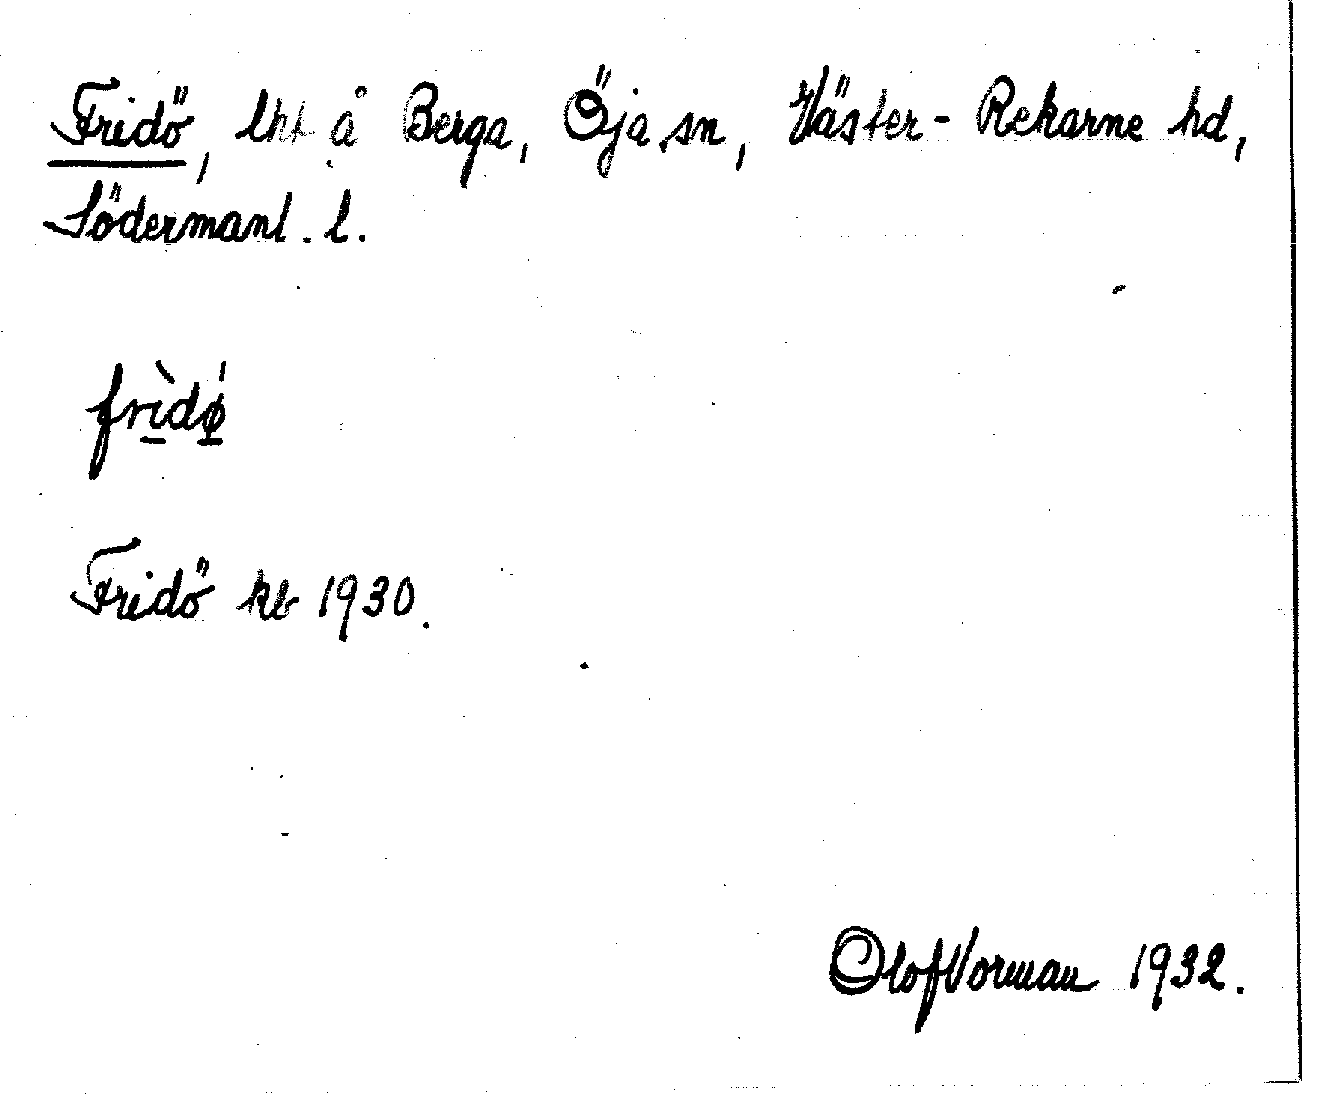 Fridö, lht å Berga, Öja sn, Väster-Rekarne hd,
Södermanl. l.
frìdǿ
Fridö kb 1930.
Olof Vorman 1932.